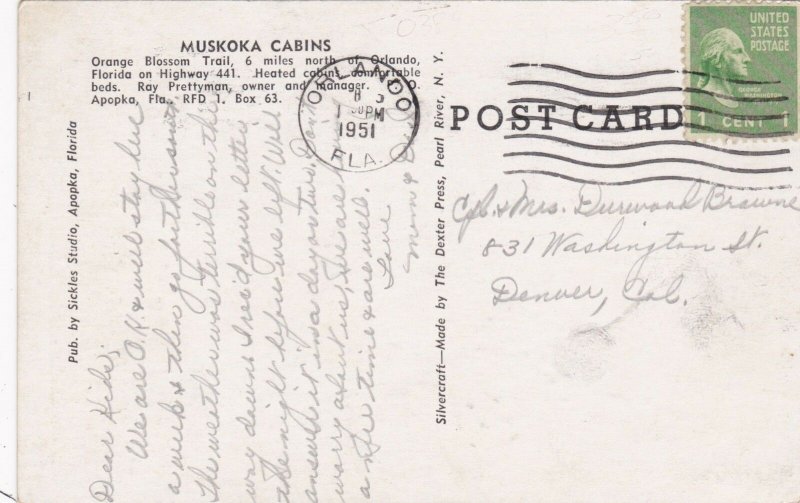 MUSKOKA CABINS
Orange Blossom Trail, 6 miles north of Orlando,
Florida on Highway 441. Heated cabins, comfortable
beds. Ray Prettyman, owner and manager. P. O.
Apopka, Fla. RFD 1. Box 63.
Pub. by Sickles Studio, Apopka, Florida
Dear Kids,
We are O.K. & will stay here
a week & then go farther south.
The weather was terrible on the
way down. I rec'd your letter
the night before we left. Will
answer it in a day or two. Don't
worry about us, we are having
a nice time & are well.
Love
Mom & Dad
Silvercraft—Made by The Dexter Press, Pearl River, N. Y.
POST CARD
ORLANDO
1951
FLA.
UNITED
STATES
POSTAGE
GEORGE
WASHINGTON
1 CENT 1
Cpl. & Mrs. Durwood Browne
831 Washington St.
Denver, Col.